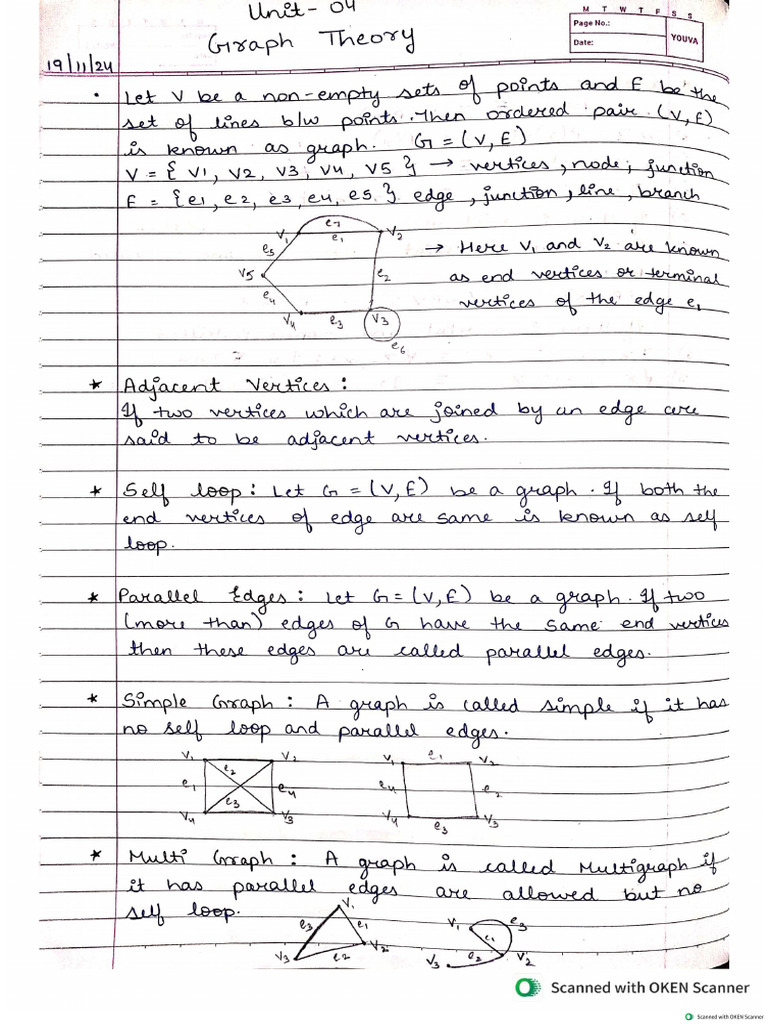 Unit - 04
Graph Theory
M T W T F S S
Page No.:
Date:
YOUVA
19/11/24
• Let V be a non-empty sets of points and E be the
set of lines b/w points. Then ordered pair (V, E)
is known as graph. G = (V, E)
V = { V1, V2, V3, V4, V5 } → vertices, node, junction
E = { e1, e2, e3, e4, e5 } edge, junction, line, branch
e7
V1 e1 V2
e5
V5 e2
e4
V4 e3 V3
e6
→ Here V1 and V2 are known
as end vertices or terminal
vertices of the edge e1
* Adjacent Vertices :
If two vertices which are joined by an edge are
said to be adjacent vertices.
* Self loop : Let G = (V, E) be a graph. If both the
end vertices of edge are same is known as self
loop.
* Parallel Edges : Let G = (V, E) be a graph. If two
(more than) edges of G have the same end vertices
then these edges are called parallel edges.
* Simple Graph : A graph is called simple if it has
no self loop and parallel edges.
V1 V2
e2
e1 e4
e3
V4 V3
V1 e1 V2
e4 e2
V4 e3 V3
* Multi Graph : A graph is called Multigraph if
it has parallel edges are allowed but no
self loop.
V1
e3 e1
V2
V3 e2
V1 e3
e1
V3 e2 V2
Scanned with OKEN Scanner
Scanned with OKEN Scanner